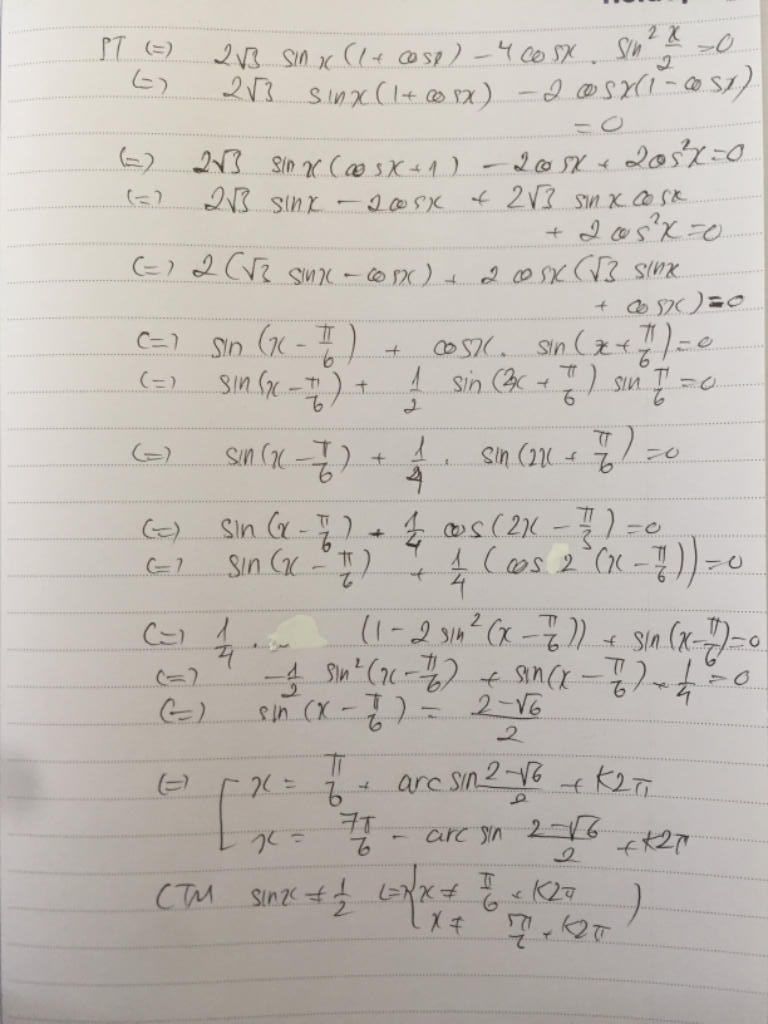 PT (=) 2√3 sin x (1 + cosx) - 4 cosx . sin² x/2 = 0
(=) 2√3 sinx (1 + cosx) - 2 cosx(1 - cosx)
= 0
(=) 2√3 sinx (cosx + 1) - 2cosx + 2cos²x = 0
(=) 2√3 sinx - 2cosx + 2√3 sinx cosx
+ 2 cos²x = 0
(=) 2 (√3 sinx - cosx) + 2 cosx (√3 sinx
+ cosx) = 0
(=) sin (x - π/6) + cosx. sin (x + π/6) = 0
(=) sin (x - π/6) + 1/2 sin (2x + π/6) sin π/6 = 0
(=) sin (x - π/6) + 1/4 . sin (2x + π/6) = 0
(=) sin (x - π/6) + 1/4 cos (2x - π/3) = 0
(=) sin (x - π/6) + 1/4 (cos 2 (x - π/6)) = 0
(=) 1/4 . (1 - 2 sin² (x - π/6)) + sin (x - π/6) = 0
(=) -1/2 sin² (x - π/6) + sin (x - π/6) + 1/4 = 0
(=) sin (x - π/6) = 2-√6/2
(=) [ x = π/6 + arc sin 2-√6/2 + K2π
x = 7π/6 - arc sin 2-√6/2 + K2π
(TM sinx ≠ 1/2 (=) { x ≠ π/6 + K2π )
x ≠ + K2π